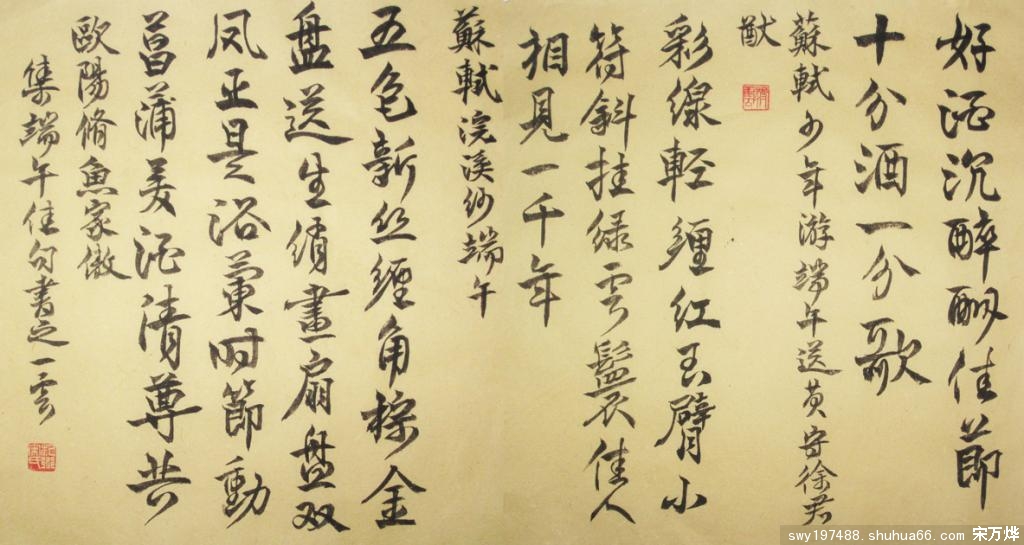 好酒沉醉酬佳節
十分酒一分歌
蘇軾少年游端午送黄守徐君
猷
彩線輕纏紅玉臂小
符斜挂绿雲鬟佳人
相見一千年
蘇軾浣溪纱端午
五色新丝纏角粽金
盘送生绡畫扇盘双
凤正是浴蘭时節動
菖蒲美酒清尊共
歐陽脩魚家傲
集端午佳句書之一雲
swy197488.shuhua66.com 宋万烨